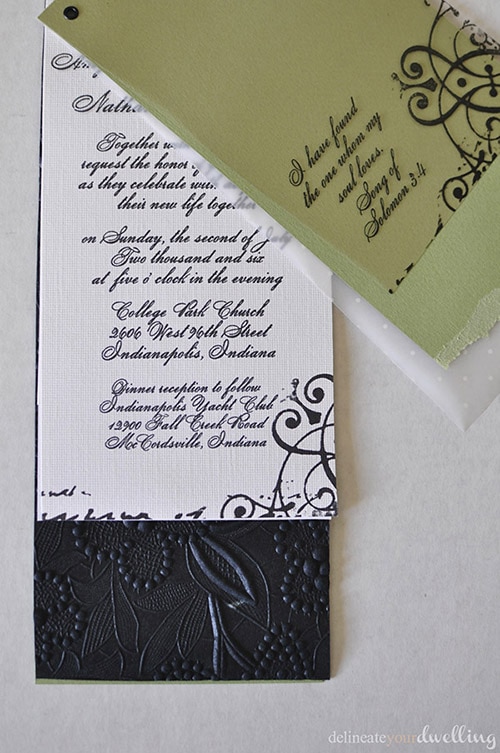 Nathan
Together
request the honor of
as they celebrate
their new life together
on Sunday, the second of July
Two thousand and six
at five o'clock in the evening
College Park Church
2606 West 96th Street
Indianapolis, Indiana
Dinner reception to follow
Indianapolis Yacht Club
12900 Fall Creek Road
McCordsville, Indiana
I have found
the one whom my
soul loves.
Song of
Solomon 3:4
delineateyourdwelling